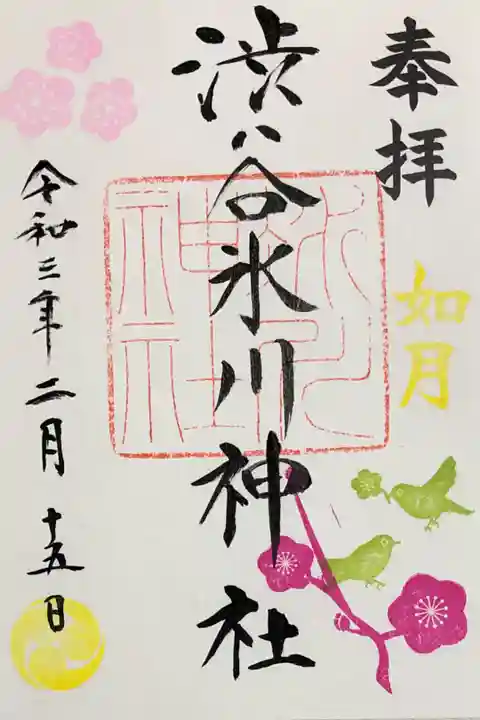 奉拝
如月
渋谷氷川神社
氷川
神社
令和三年二月十五日